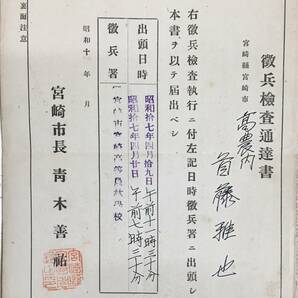 徴兵檢査通達書
宮崎縣宮崎市
高農内
首藤雅也
右徴兵檢査執行ニ付左記日時徴兵署ニ出頭シ
本書ヲ以テ届出ベシ
出頭日時
昭和拾七年四月拾九日午前十一時三十分
昭和拾七年四月二十日午前七時三十分
徴兵署
昭和十 年 月
宮崎市長 靑木善祐
裏面注意